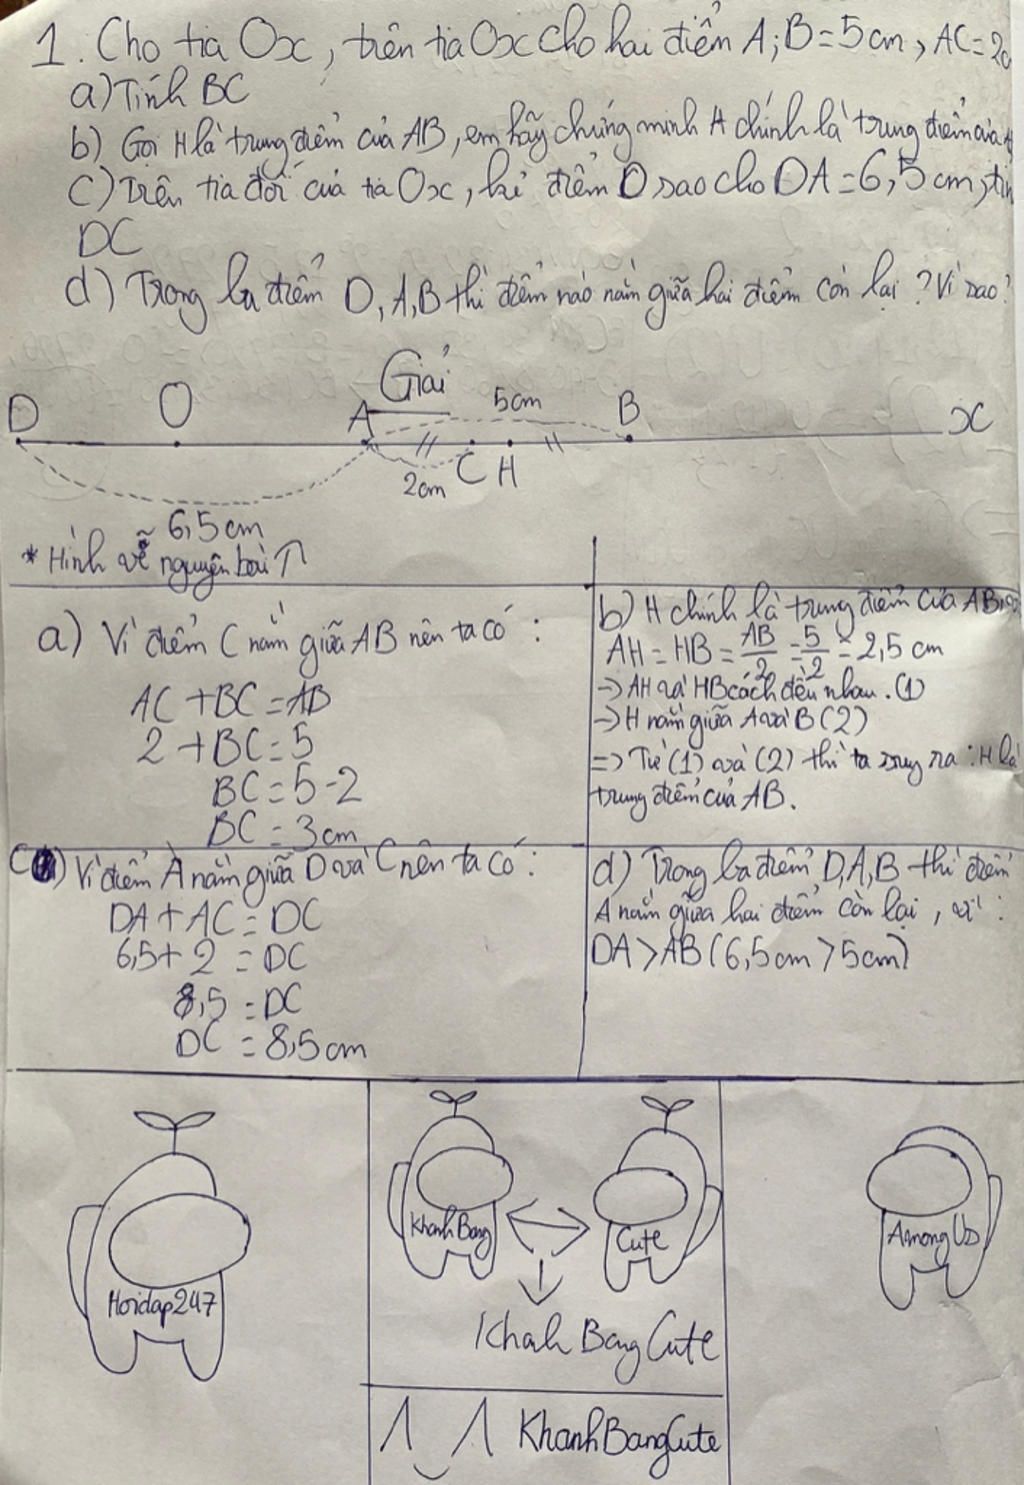 1. Cho tia Ox, trên tia Ox cho hai điểm A; B = 5cm, AC = 2c
a) Tính BC
b) Gọi H là trung điểm của AB, em hãy chứng minh H chính là trung điểm của
c) Trên tia đối của tia Ox, kẻ điểm D sao cho DA = 6,5 cm, tín
DC
d) Trong ba điểm D, A, B thì điểm nào nằm giữa hai điểm còn lại? Vì sao?
Giải
D O A 5cm B x
2cm C H
6,5cm
* Hình vẽ nguyên bài ↑
a) Vì điểm C nằm giữa AB nên ta có:
AC + BC = AB
2 + BC = 5
BC = 5 - 2
BC = 3cm
b) H chính là trung điểm của AB
AH = HB = AB/2 = 5/2 = 2,5 cm
→ AH và HB cách đều nhau. (1)
→ H nằm giữa A và B (2)
=> Từ (1) và (2) thì ta suy ra: H là
trung điểm của AB.
c) Vì điểm A nằm giữa D và C nên ta có:
DA + AC = DC
6,5 + 2 = DC
8,5 = DC
DC = 8,5cm
d) Trong ba điểm D, A, B thì điểm
A nằm giữa hai điểm còn lại, vì:
DA > AB (6,5cm > 5cm)
Hoidap247
Khanh Bang
Cute
Among Us
Khanh Bang Cute
KhanhBangCute